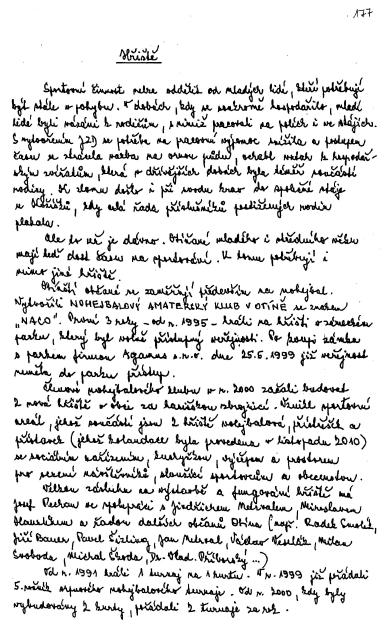 177
Hřiště
Sportovní činnost nelze oddělit od mladých lidí, kteří potřebují
být stále v pohybu. V dobách, kdy se soukromě hospodařilo, mladí
lidé byli vázáni k rodičům, s nimiž pracovali na polích i ve stájích.
S vytvořením JZD se potřeba na pracovní výpomoc snížila a postupem
času se ztrácela vazba na ornou půdu, ochabl vztah k hospodář-
ským zvířatům, která v dřívějších dobách byla téměř součástí
rodiny. K zlomu došlo i při svodu krav do společné stáje
u , kdy celá řada příslušníků postižených rodin
plakala.
Ale to už je dávno. Otíňané mladého i středního věku
mají teď dost času na sportování. K tomu potřebují i
mimo jiné hřiště.
Otínští občané se zaměřují především na nohejbal.
Vytvořili NOHEJBALOVÝ AMATÉRSKÝ KLUB V OTÍNĚ se znakem
„NACO". První 3 roky – od r. 1995 – hráli na hřišti v zámeckém
parku, který byl volně přístupný veřejnosti. Po koupi zámku
s parkem firmou s.r.o. dne 25.5.1999 již veřejnost
neměla do parku přístup.
Členové nohejbalového klubu v r. 2000 začali budovat
2 nová hřiště v obci za hasičskou zbrojnicí. Vznikl sportovní
areál, jehož součástí jsou 2 hřiště nohejbalová, přístřešek a
přístavek (jehož kolaudace byla provedena v listopadu 2010)
se sociálním zařízením, kuchyňkou, výčepem a prostorem
pro sezení návštěvníků, sloužící sportovcům a obecenstvu.
Velkou zásluhu na výstavbě a fungování hřiště má
Josef Pechan ve spolupráci s Jindřichem Mehvalem, Miroslavem
a řadou dalších občanů Otína (např. Radek Smolík,
Jiří Bauer, Pavel Šizling, Jan Mehval, Václav Veselák, Milan
Svoboda, Michal Škoda, Dr. Vlad. Příborský ...)
Od r. 1991 hráli 1 turnaj na 1 kurtu. V r. 1999 již pořádali
5. ročník srpnového nohejbalového turnaje. Od r. 2000, kdy byly
vybudovány 2 kurty, pořádali 2 turnaje za rok.